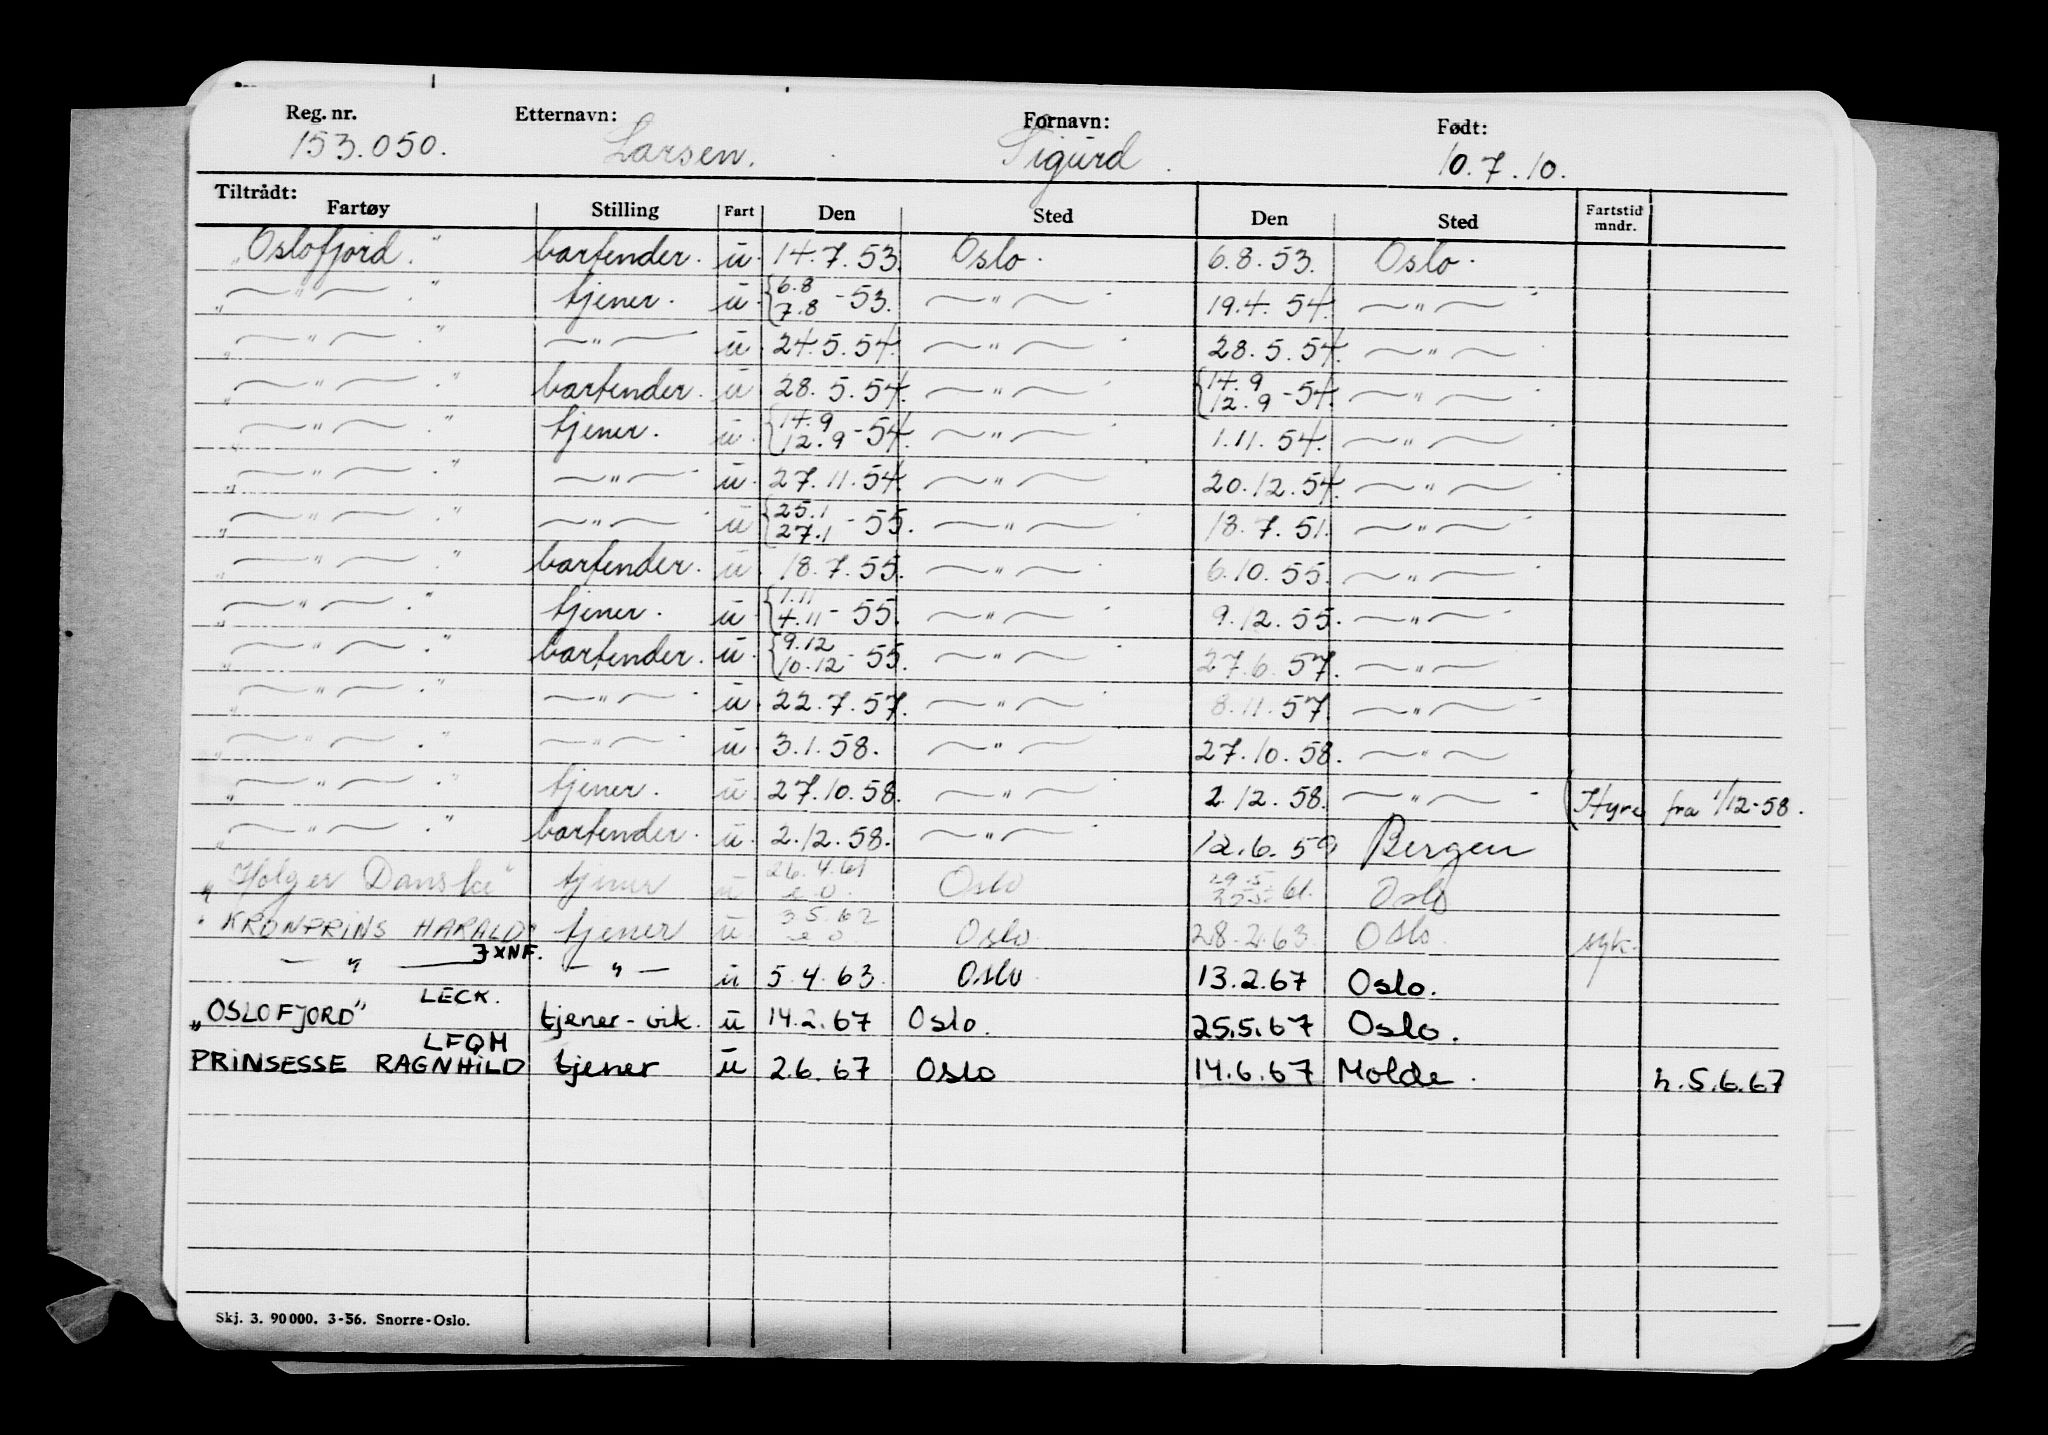 Reg. nr. Etternavn: Fornavn: Født:
153.050. Larsen. Sigurd. 10.7.10.
Tiltrådt:
Fartøy Stilling Fart Den Sted Den Sted Fartstid mndr.
„Oslofjord." bartender. u. 14.7.53. Oslo. 6.8.53. Oslo.
„—"—." tjener. u. {6.8 7.8 -53. —"— 19.4.54. —"—
„—"—." —"— u. 24.5.54. —"— 28.5.54. —"—
„—"—." bartender. u. 28.5.54. —"— {14.9 12.9 -54. —"—
„—"—." tjener. u. {14.9 12.9 -54. —"— 1.11.54. —"—
„—"—." —"— u. 27.11.54. —"— 20.12.54. —"—
„—"—." —"— u. {25.1 27.1 -55. —"— 18.7.51. —"—
„—"—." bartender. u. 18.7.55. —"— 6.10.55. —"—
„—"—." tjener. u. {1.11 4.11 -55. —"— 9.12.55. —"—
„—"—." bartender. u. {9.12 10.12 -55. —"— 27.6.57. —"—
„—"—." —"— u. 22.7.57. —"— 8.11.57. —"—
„—"—." —"— u. 3.1.58. —"— 27.10.58. —"—
„—"—." tjener. u. 27.10.58. —"— 2.12.58. —"— (Hyre fra 1/12-58.
„—"—." bartender. u. 2.12.58. —"— 12.6.59 Bergen
„Holger Danske" tjener u 26.4.61 Oslo 61. Oslo
"KRONPRINS HARALD" tjener u 3.5.62 Oslo. 28.2.63. Oslo. syk.
JXNF.
—"— —"— u 5.4.63. Oslo. 13.2.67 Oslo.
LECK.
„OSLOFJORD" tjener-vik. u 14.2.67 Oslo. 25.5.67 Oslo.
LFQM
PRINSESSE RAGNHILD tjener u 2.6.67 Oslo 14.6.67 Molde. h.5.6.67
Skj. 3. 90000. 3-56. Snorre-Oslo.